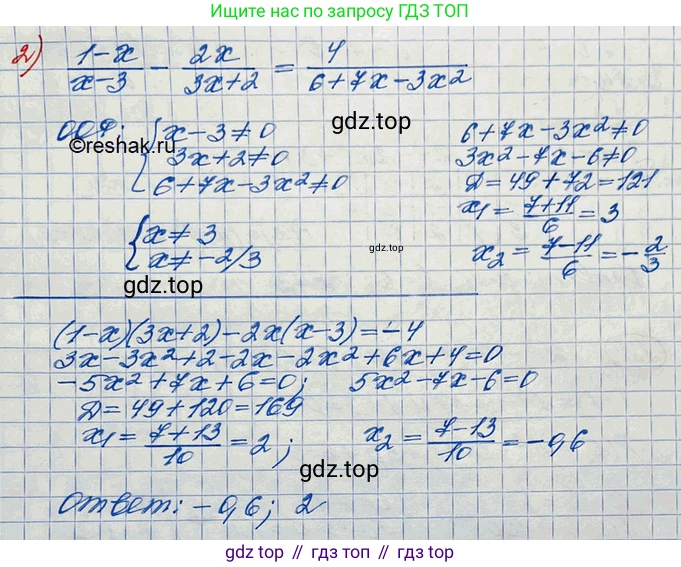 Ищите нас по запросу ГДЗ ТОП
2) (1-x)/(x-3) - 2x/(3x+2) = 4/(6+7x-3x²)
ООУ: { x-3≠0
3x+2≠0
6+7x-3x²≠0
{ x≠3
x≠-2/3
6+7x-3x²≠0
3x²-7x-6≠0
D=49+72=121
x₁=(7+11)/6=3
x₂=(7-11)/6=-2/3
©reshak.ru
gdz.top
gdz.top
gdz.top
(1-x)(3x+2)-2x(x-3)=-4
3x-3x²+2-2x-2x²+6x+4=0
-5x²+7x+6=0; 5x²-7x-6=0
D=49+120=169
x₁=(7+13)/10=2; x₂=(7-13)/10=-0,6
gdz.top
gdz.top
Ответ: -0,6; 2
gdz.top // гдз топ // гдз.топ